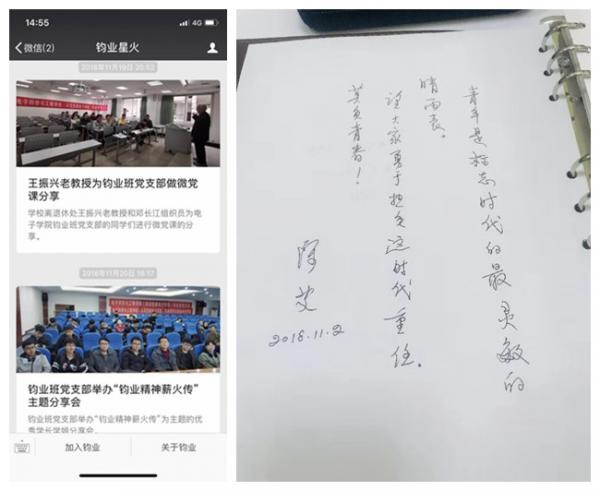 14:55
4G
微信(2)
钧业星火
2018年11月19日 20:52
王振兴老教授为钧业班党支部做微党
课分享
学校离退休处王振兴老教授和邓长江组织员为电
子学院钧业班党支部的同学们进行微党课的分
享。
2018年11月20日
钧业班党支部举办“钧业精神薪火传”
主题分享会
钧业班党支部举办“钧业精神薪火传”为主题的优
秀学长学姐分享会。
加入钧业
关于钧业
青年是标志时代的最灵敏的
晴雨表。
望大家勇于担负这时代重任。
莫负青春！
2018.11.2